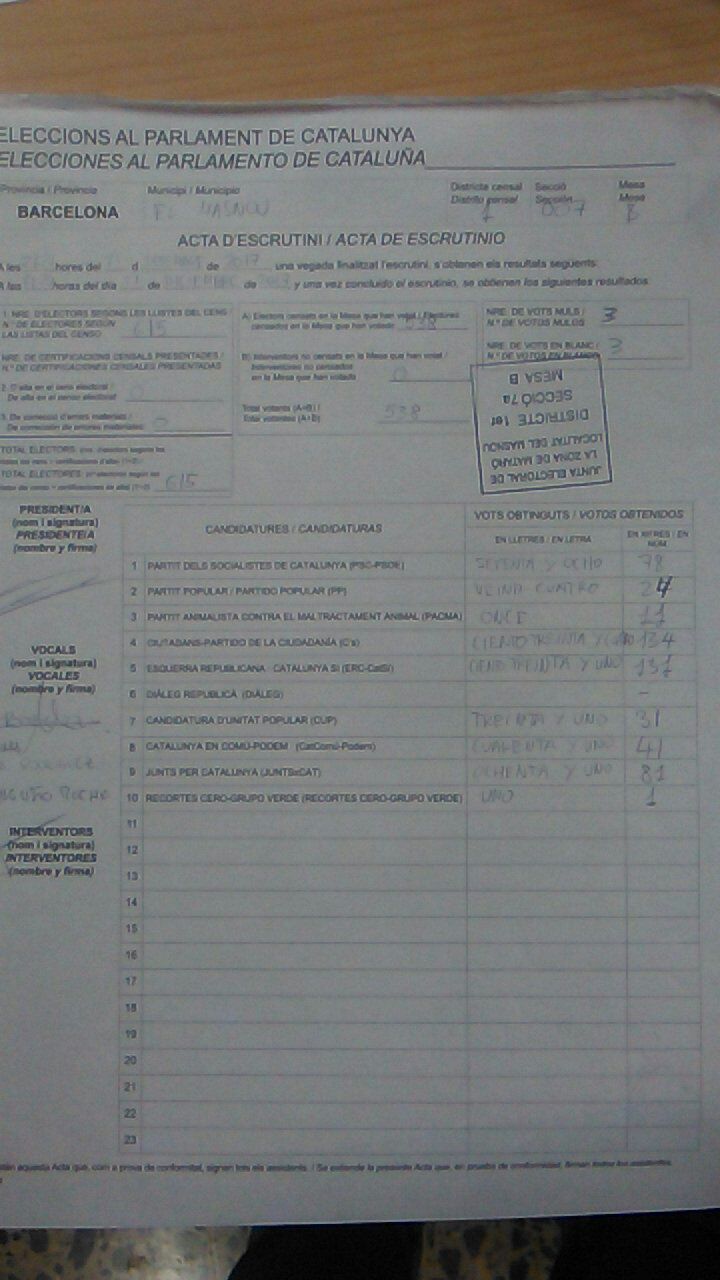 ELECCIONS AL PARLAMENT DE CATALUNYA
ELECCIONES AL PARLAMENTO DE CATALUÑA
Província / Provincia
Municipi / Municipio
Districte censal
Distrito censal
Secció
Sección
Mesa
Mesa
BARCELONA
EL MASNOU
1
007
B
ACTA D'ESCRUTINI / ACTA DE ESCRUTINIO
A les hores del d de 2017 una vegada finalitzat l'escrutini, s'obtenen els resultats següents:
A las horas del día 21 de DICIEMBRE de y una vez concluido el escrutinio, se obtienen los siguientes resultados:
1. NRE. D'ELECTORS SEGONS LES LLISTES DEL CENS
N.º DE ELECTORES SEGÚN
LAS LISTAS DEL CENSO
615
NRE. DE CERTIFICACIONS CENSALS PRESENTADES /
N.º DE CERTIFICACIONES CENSALES PRESENTADAS
2. D'alta en el cens electoral /
De alta en el censo electoral
0
3. De correcció d'errors materials /
De corrección de errores materiales
0
TOTAL ELECTORS
TOTAL ELECTORES
615
A) Electors censats en la Mesa que han votat / Electores
censados en la Mesa que han votado
538
B) Interventors no censats en la Mesa que han votat /
Interventores no censados
en la Mesa que han votado
0
Total votants (A+B) /
Total votantes (A+B)
538
NRE. DE VOTS NULS /
N.º DE VOTOS NULOS
3
NRE. DE VOTS EN BLANC /
N.º DE VOTOS EN BLANCO
3
JUNTA ELECTORAL DE
LA ZONA DE MATARÓ
LOCALITAT DEL MASNOU
DISTRICTE 1er
SECCIÓ 7a
MESA B
PRESIDENT/A
(nom i signatura)
PRESIDENTE/A
(nombre y firma)
VOCALS
(nom i signatura)
VOCALES
(nombre y firma)
INTERVENTORS
(nom i signatura)
INTERVENTORES
(nombre y firma)
CANDIDATURES / CANDIDATURAS
VOTS OBTINGUTS / VOTOS OBTENIDOS
EN LLETRES / EN LETRA
EN XIFRES / EN NÚM.
1 PARTIT DELS SOCIALISTES DE CATALUNYA (PSC-PSOE) SETENTA Y OCHO 78
2 PARTIT POPULAR / PARTIDO POPULAR (PP) VEINTI CUATRO 24
3 PARTIT ANIMALISTA CONTRA EL MALTRACTAMENT ANIMAL (PACMA) ONCE 11
4 CIUTADANS-PARTIDO DE LA CIUDADANÍA (C's) CIENTO TREINTA Y 134
5 ESQUERRA REPUBLICANA - CATALUNYA SÍ (ERC-CatSí) CIENTO TREINTA Y UNO 131
6 DIÀLEG REPUBLICÀ (DIÀLEG) -
7 CANDIDATURA D'UNITAT POPULAR (CUP) TREINTA Y UNO 31
8 CATALUNYA EN COMÚ-PODEM (CatComú-Podem) CUARENTA Y UNO 41
9 JUNTS PER CATALUNYA (JUNTSxCAT) OCHENTA Y UNO 81
10 RECORTES CERO-GRUPO VERDE (RECORTES CERO-GRUPO VERDE) UNO 1
11
12
13
14
15
16
17
18
19
20
21
22
23
aquesta Acta que, com a prova de conformitat, signen tots els assistents. / Se extiende la presente Acta que, en prueba de conformidad, firman todos los asistentes.